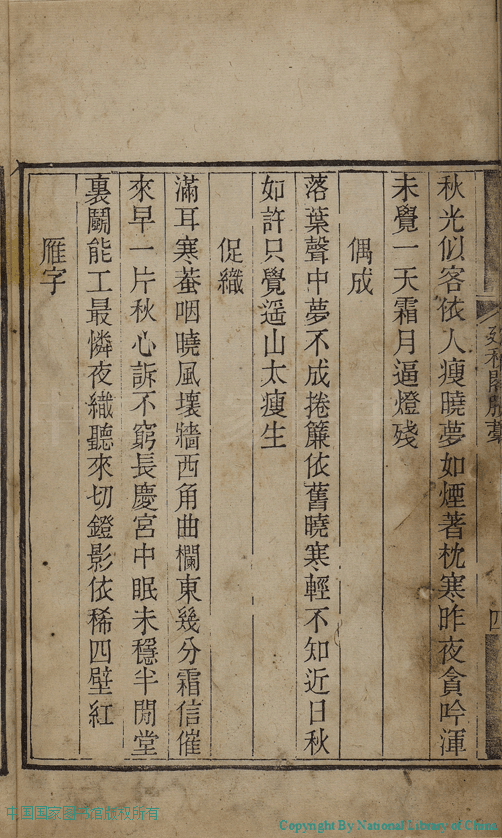 秋光似客依人瘦曉夢如煙著枕寒昨夜貪吟渾
未覺一天霜月逼燈殘
偶成
落葉聲中夢不成捲簾依舊曉寒輕不知近日秋
如許只覺遥山太瘦生
促織
滿耳寒蛩咽曉風壞牆西角曲欄東幾分霜信催
來早一片秋心訴不窮長慶宮中眠未穩半閒堂
裏鬭能工最憐夜織聽來切鐙影依稀四壁紅
雁字
四
中国国家图书馆版权所有
Copyright By National Library of China